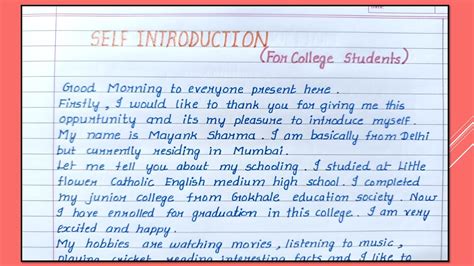 SELF INTRODUCTION
(For College Students)
Good Morning to everyone present here.
Firstly, I would like to thank you for giving me this
oppurtunity and its my pleasure to introduce myself.
My name is Mayank Sharma. I am basically from Delhi
but currently residing in Mumbai.
Let me tell you about my schooling. I studied at Little
flower Catholic English medium high school. I completed
my junior college from Gokhale education society. Now
I have enrolled for graduation in this college. I am very
excited and happy.
My hobbies are watching movies, listening to music,
playing cricket, reading interesting facts and I like to